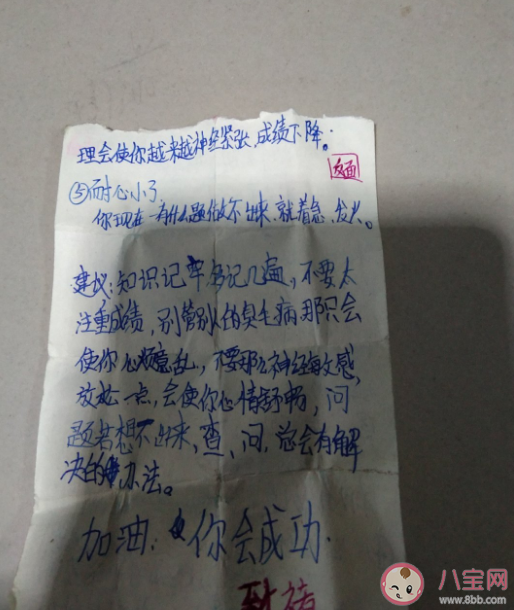 理会使你越来越神经紧张,成绩下降.
反面
⑤耐心小了
你现在一有什么题做不出来,就着急、发火。
建议:知识记牢多记几遍,不要太
注重成绩,别管别人的臭毛病,那只会
使你心烦意乱,不要那么神经敏感,
放松一点,会使你心情舒畅,问
题若想不出来,查、问,总会有解
决的办法。
加油:你会成功.
八宝网
www.8bb.com